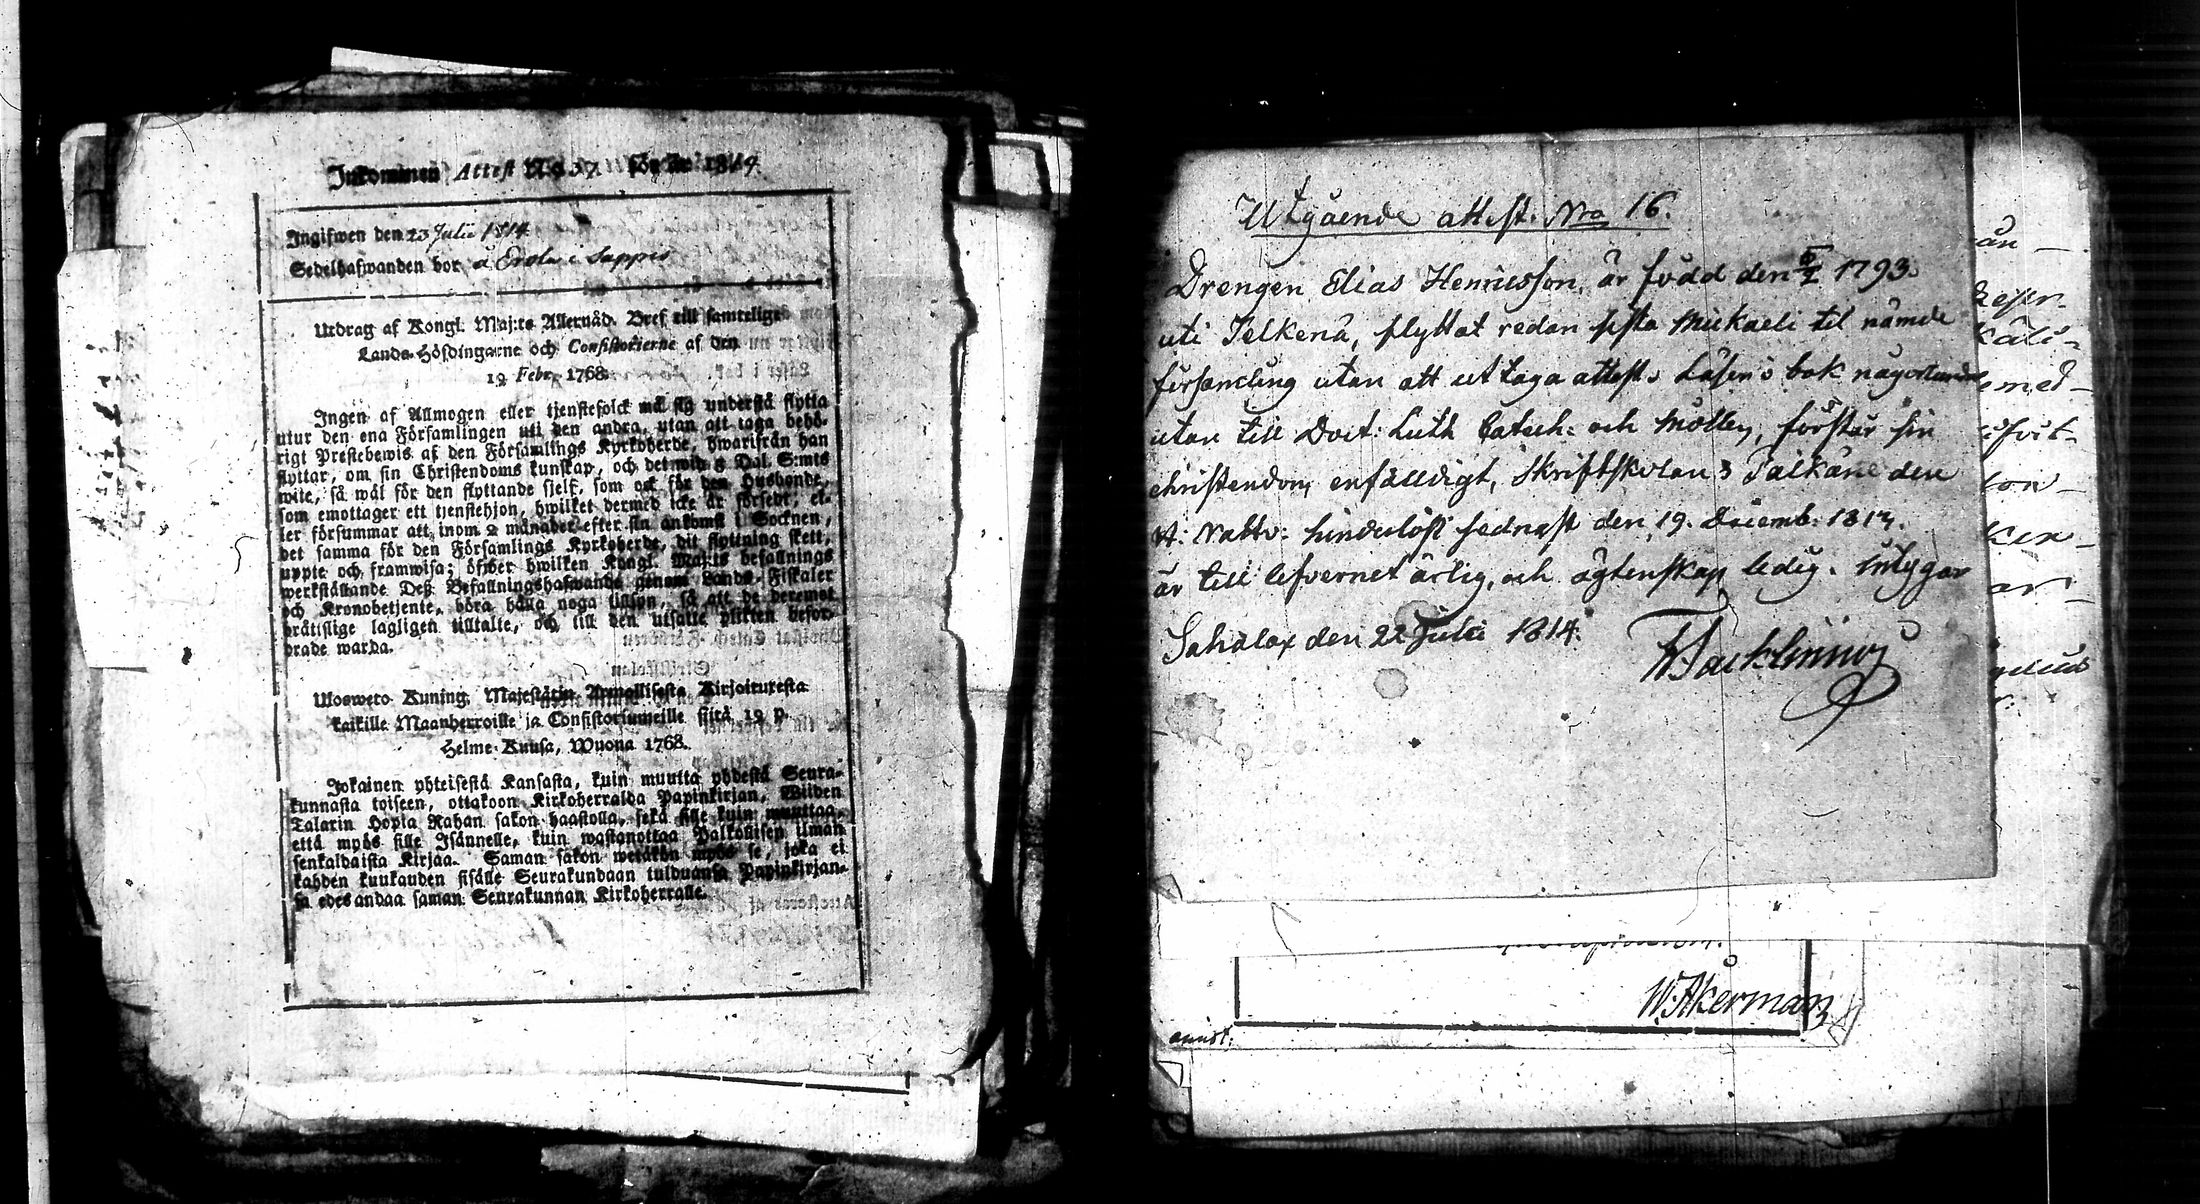 Inkommen Attest No 37 för år 1814.
Ingifwen den 23 Julii 1814
Sedelhafwanden bor å Erola i Sappis
Utdrag af Kongl. Maj:ts Allernåd. Bref till samtelige
Lands-Höfdingarne och Consistorierne af den
19 Febr. 1768.
Ingen af Allmogen eller tjenstefolck må sig understå flytta
utur den ena Församlingen uti den andra, utan att taga behö-
rigt Prestebewis af den Församlings Kyrkoherde, hwarifrån han
flyttar, om sin Christendoms kunskap, och det wid 8 Dal. S:mts
wite, så wäl för den flyttande sjelf, som ock för den Husbonde,
som emottager ett tjenstehjon, hwilket dermed icke är försedt, el-
ler försummar att inom 2 månader efter sin ankomst i Socknen,
det samma för den Församlings Kyrkoherde, dit flyttning skett,
uppte och framwisa; öfwer hwilken Kongl. Maj:ts befallnings
werkställande Deß Befallningshafwande genom Lands-Fiskaler
och Kronobetjente, böra hålla noga tillsyn, så att de deremot
brätislige lagligen tilltalte, och till den utsatte plikten befor-
drade warda.
Ulosweto Kuning. Majestätin Armollisesta Kirjoituxesta
kaikille Maanherroille ja Consistoriumeille siitä 19 p.
Helme-Kuusa, Wuona 1768.
Jokainen yhteisestä Kansasta, kuin muutta yhdestä Seura-
kunnasta toiseen, ottakoon Kirkoherralda Papinkirjan, Wiiden
Talarin Hopia Rahan sakon haastolla, sekä sille kuin muuttaa,
että myös sille Isännelle, kuin wastanottaa Palkollisen ilman
senkaldaista Kirjaa. Saman sakon wetäkön myös se, joka ei
kahden kuukauden sisälle Seurakundaan tulduansa Papinkirjan-
sa edesandaa saman Seurakunnan Kirkoherralle.
Utgående attest. Nro 16.
Drengen Elias Henricsson, är född den 5/2 1793.
uti Pelkenä, flyttat redan sista Mickaeli til nämde
församling utan att uttaga attest; Läser i bok någorlunda
utan till Doct: Luth Catech: och Möller, förstår sin
christendom enfälldigt, Skriftskolan i Pälkäne den
H: Nattv: hinderlöst sednast den 19. Decemb: 1813.
är till lefvernet ärlig, och ägtenskap ledig. intygar
Sahalax den 22 Julii 1814.
W. Åkerman
än
med